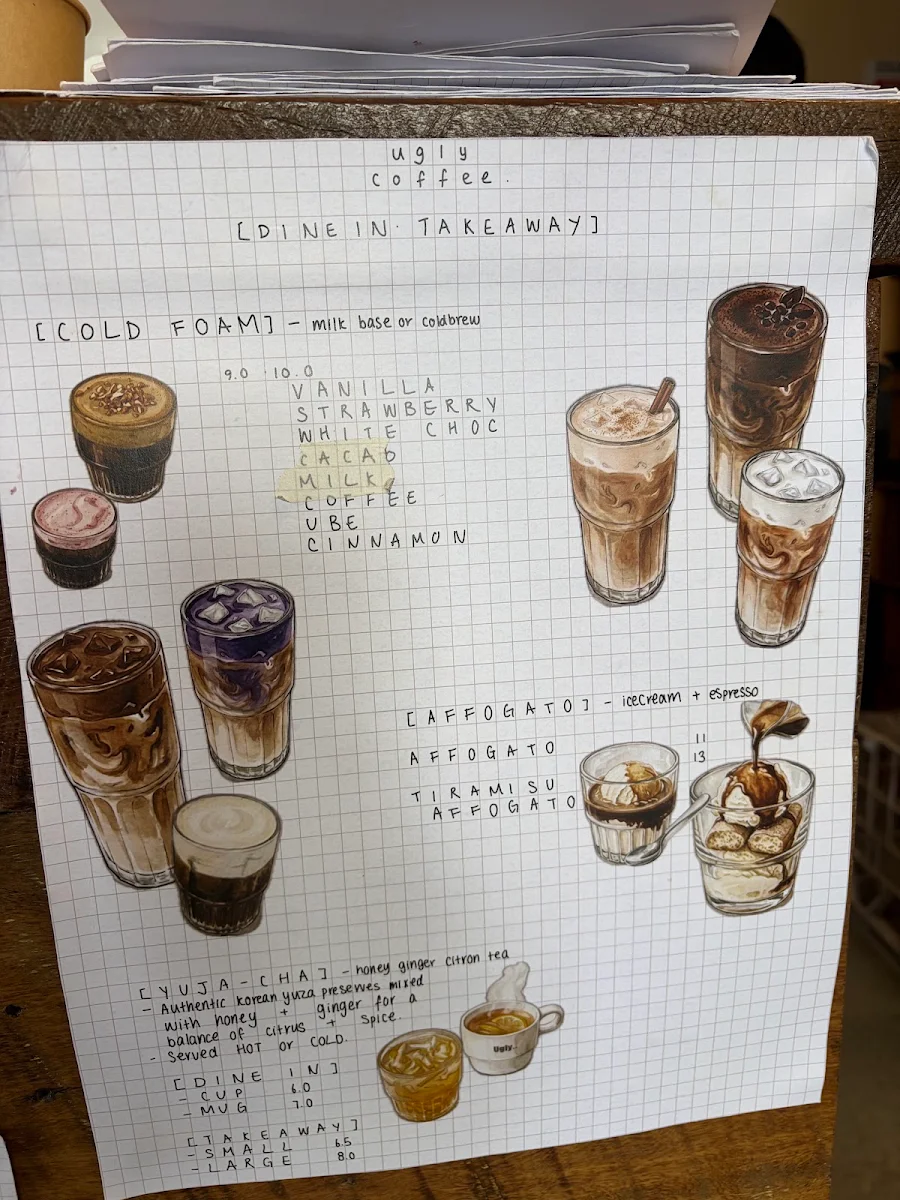 ugly
coffee.
[DINE IN · TAKEAWAY]
[COLD FOAM] - milk base or coldbrew
9.0 10.0
VANILLA
STRAWBERRY
WHITE CHOC
CACAO
MILK
COFFEE
UBE
CINNAMON
[AFFOGATO] - icecream + espresso
AFFOGATO 11
13
TIRAMISU
AFFOGATO
[YUJA-CHA] - honey ginger citron tea
- Authentic korean yuza preserves mixed
with honey + ginger for a
balance of citrus + spice
- Served HOT or COLD.
Ugly.
[DINE IN]
- CUP 6.0
- MUG 7.0
[TAKEAWAY]
- SMALL 6.5
- LARGE 8.0